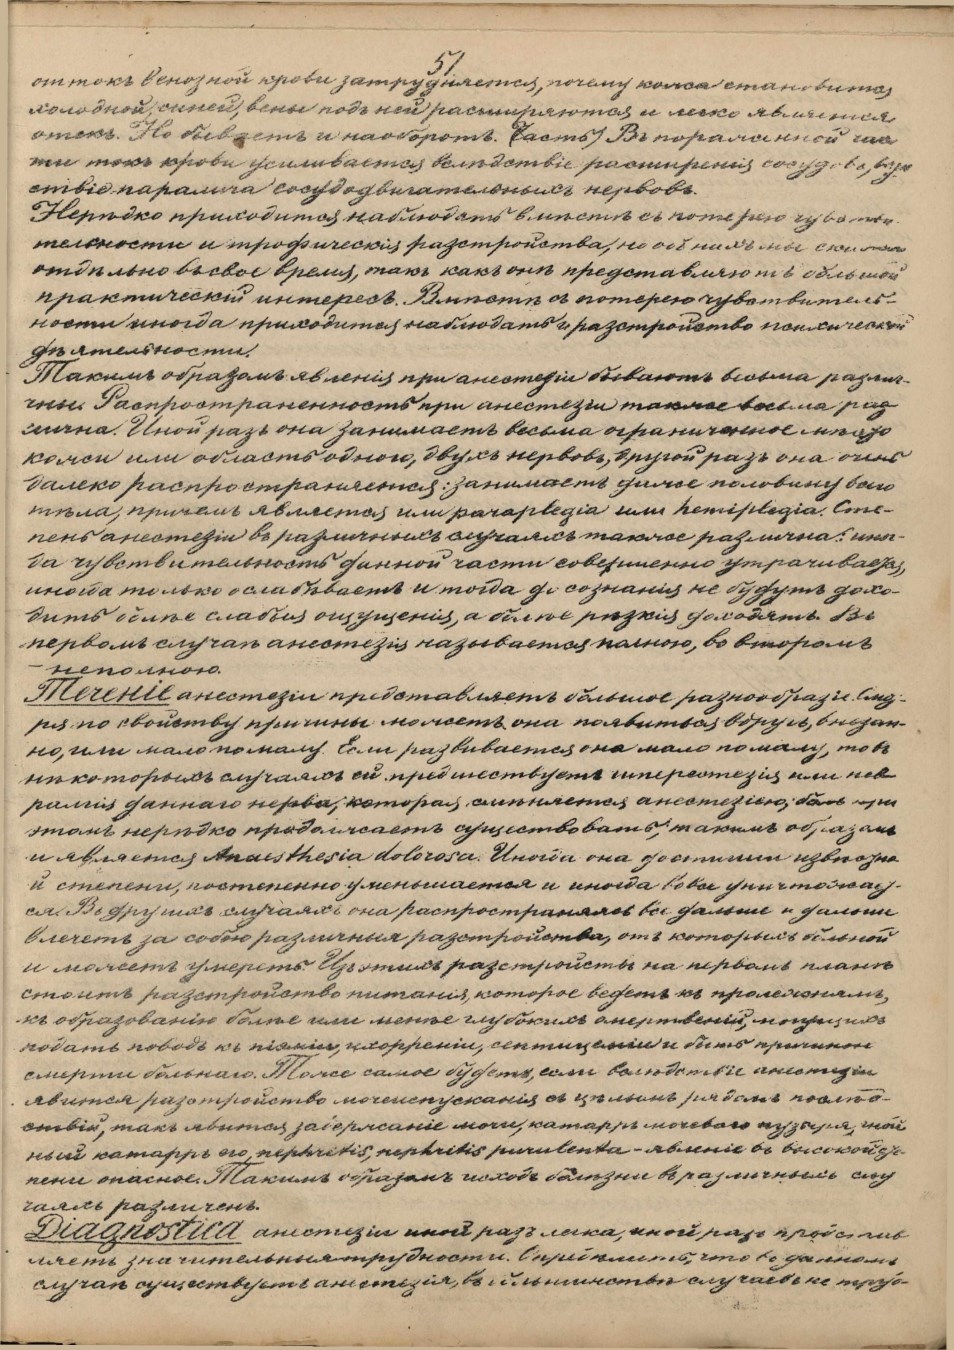 51
оттокъ венозной крови затрудняется, почему кожа становится
холодной, синей, вены подъ ней расширяются и легко является
отекъ. Но бываетъ и наоборотъ. (часть) Въ пораженной час
ти токъ крови усиливается вслѣдствіе расширенія сосудовъ,
ствіе паралича сосудодвигательныхъ нервовъ.
Нерѣдко приходится наблюдать вмѣстѣ съ потерею чувстви-
тельности и трофическія разстройства, но объ нихъ мы скажемъ
отдѣльно въ свое время, такъ какъ онѣ представляютъ большой
практическій интересъ. Вмѣстѣ съ потерею чувствитель-
ности иногда приходится наблюдать и разстройство психической
дѣятельности.
Такимъ образомъ явленія при анестезіи бываютъ весьма различ-
ны. Распространенность при анестезіи также весьма раз
лична. Иной разъ она занимаетъ весьма ограниченное мѣсто
кожи или область одного, двухъ нервовъ, другой разъ она очень
далеко распространяется: занимаетъ даже половину всего
тѣла, причемъ является или paraplegia или hemiplegia. Сте-
пень анестезіи въ различныхъ случаяхъ также различна: иног-
да чувствительность данной части совершенно утрачивается,
иногда только ослабѣваетъ и тогда до сознанія не будутъ дохо-
дить болѣе слабыя ощущенія, а болѣе рѣзкія доходятъ. Въ
первомъ случаѣ анестезія называется полною, во второмъ
– неполною.
Теченіе анестезіи представляетъ большое разнообразіе. Смот-
ря по свойству причины можетъ она появиться вдругъ, внезап-
но, или мало по малу. Если развивается она мало по малу, то въ
нѣкоторыхъ случаяхъ ей предшествуетъ гиперестезія или нев
ралгія даннаго нерва, которая смѣняется анестезіею, боль при
этомъ нерѣдко продолжаетъ существовать, такимъ образомъ
и является Anaesthesia dolorosa. Иногда она достигши извѣстно
й степени, постепенно уменьшается и иногда вовсе уничтожает-
ся. Въ другихъ случаяхъ она распространяясь все дальше и дальше
влечетъ за собою различныя разстройства, отъ которыхъ больной
и можетъ умереть. Изъ этихъ разстройствъ на первомъ планѣ
стоитъ разстройство питанія, которое ведетъ къ пролежнямъ,
къ образованію болѣе или менѣе глубокихъ омертвеній, могущихъ
подать поводъ къ піэміи, ихорреміи, септицеміи и быть причиною
смерти больнаго. Тоже самое будетъ, если вслѣдствіе анестезіи
явится разстройство мочеиспусканія съ цѣлымъ рядомъ послѣд-
ствій, такъ явится задержаніе мочи, катарръ мочеваго пузыря, гной
ный катарръ его, nephritis, nephritis purulenta – явленіе въ высокой сте-
пени опасное. Такимъ образомъ исходъ болѣзни въ различныхъ слу
чаяхъ различенъ.
Diagnostica анестезіи иной разъ легка, иной разъ представ
ляетъ значительныя трудности. Опредѣлить, что въ данномъ
случаѣ существуетъ анестезія, въ большинствѣ случаевъ не труд-